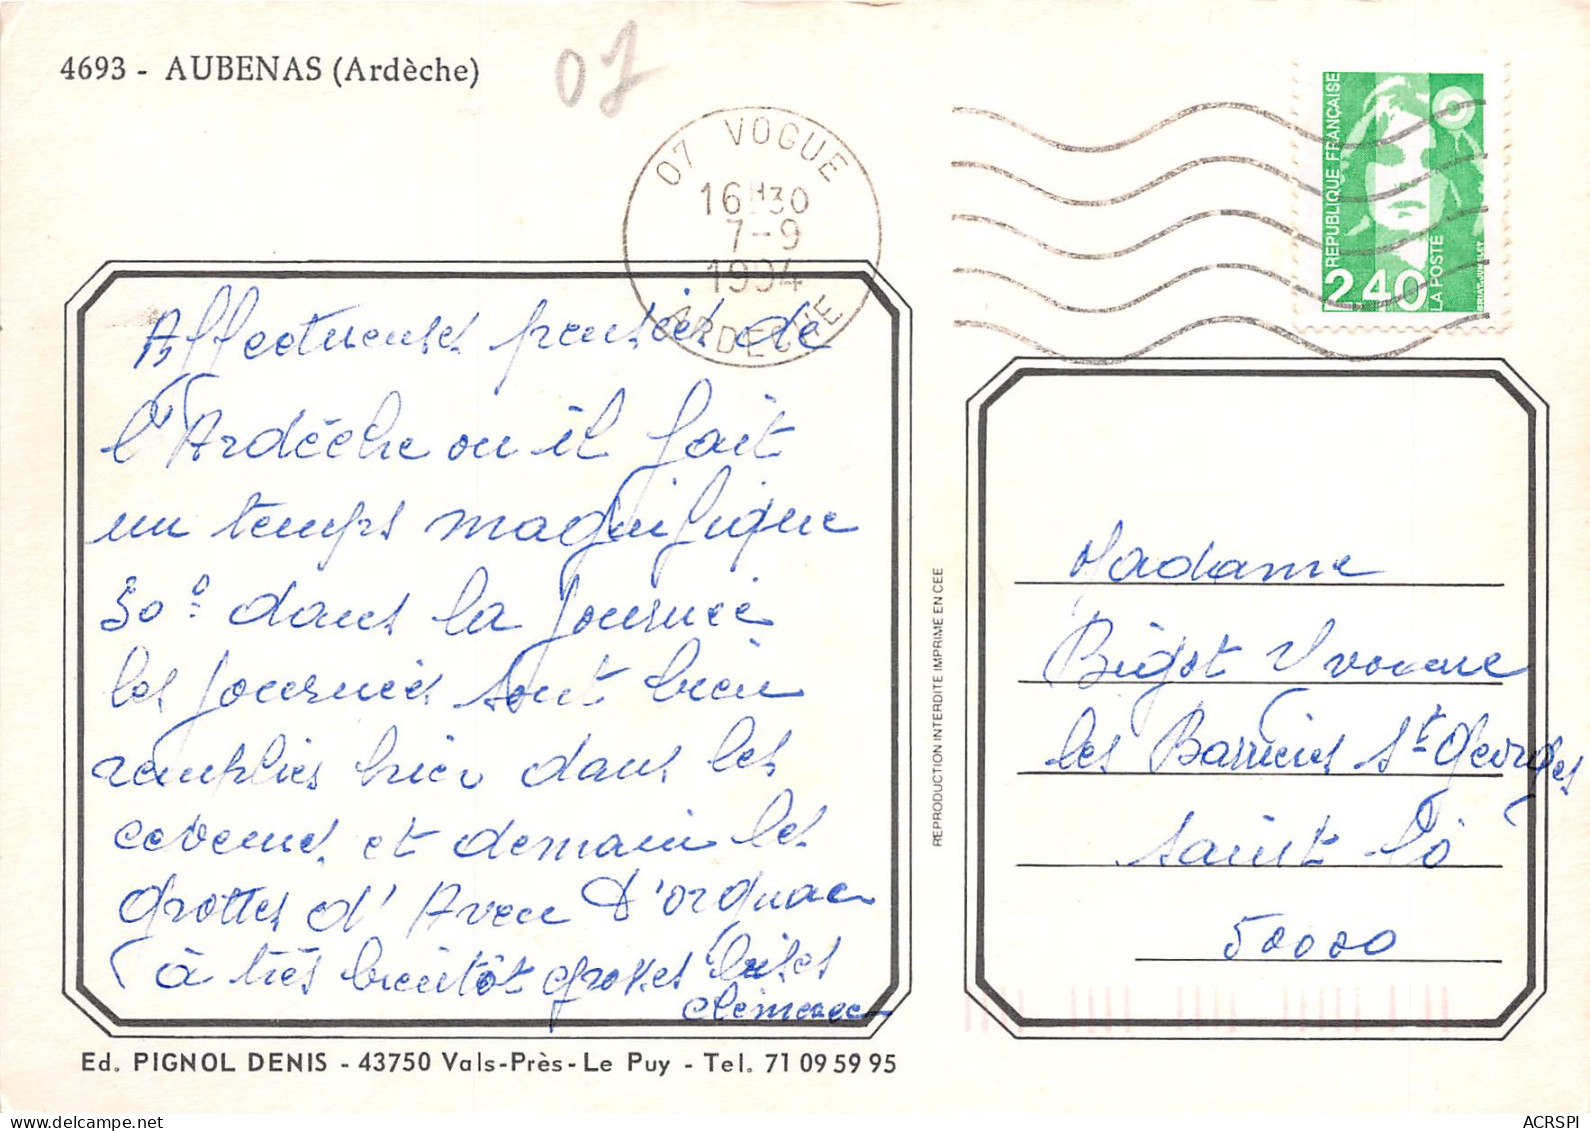 4693 - AUBENAS (Ardèche)
07
07 VOGUE
16H30
7-9
1994
ARDECHE
REPUBLIQUE FRANÇAISE
2,40
LA POSTE
BRIAT-JUMELET
Affectueuses pensées de
l'Ardèche ou il fait
un temps magnifique
30° dans la journée
les journées sont bien
remplies hier dans les
cevennes, et demain les
grottes d'Aven D'orgnac
à très bientôt grosses bises
Clémence
Madame
Bigot Yvonne
les Barrières St Georges
Saint-Lô
50000
REPRODUCTION INTERDITE IMPRIME EN CEE
Ed. PIGNOL DENIS - 43750 Vals-Près-Le Puy - Tel. 71 09 59 95
delcampe.net
ACRSPI